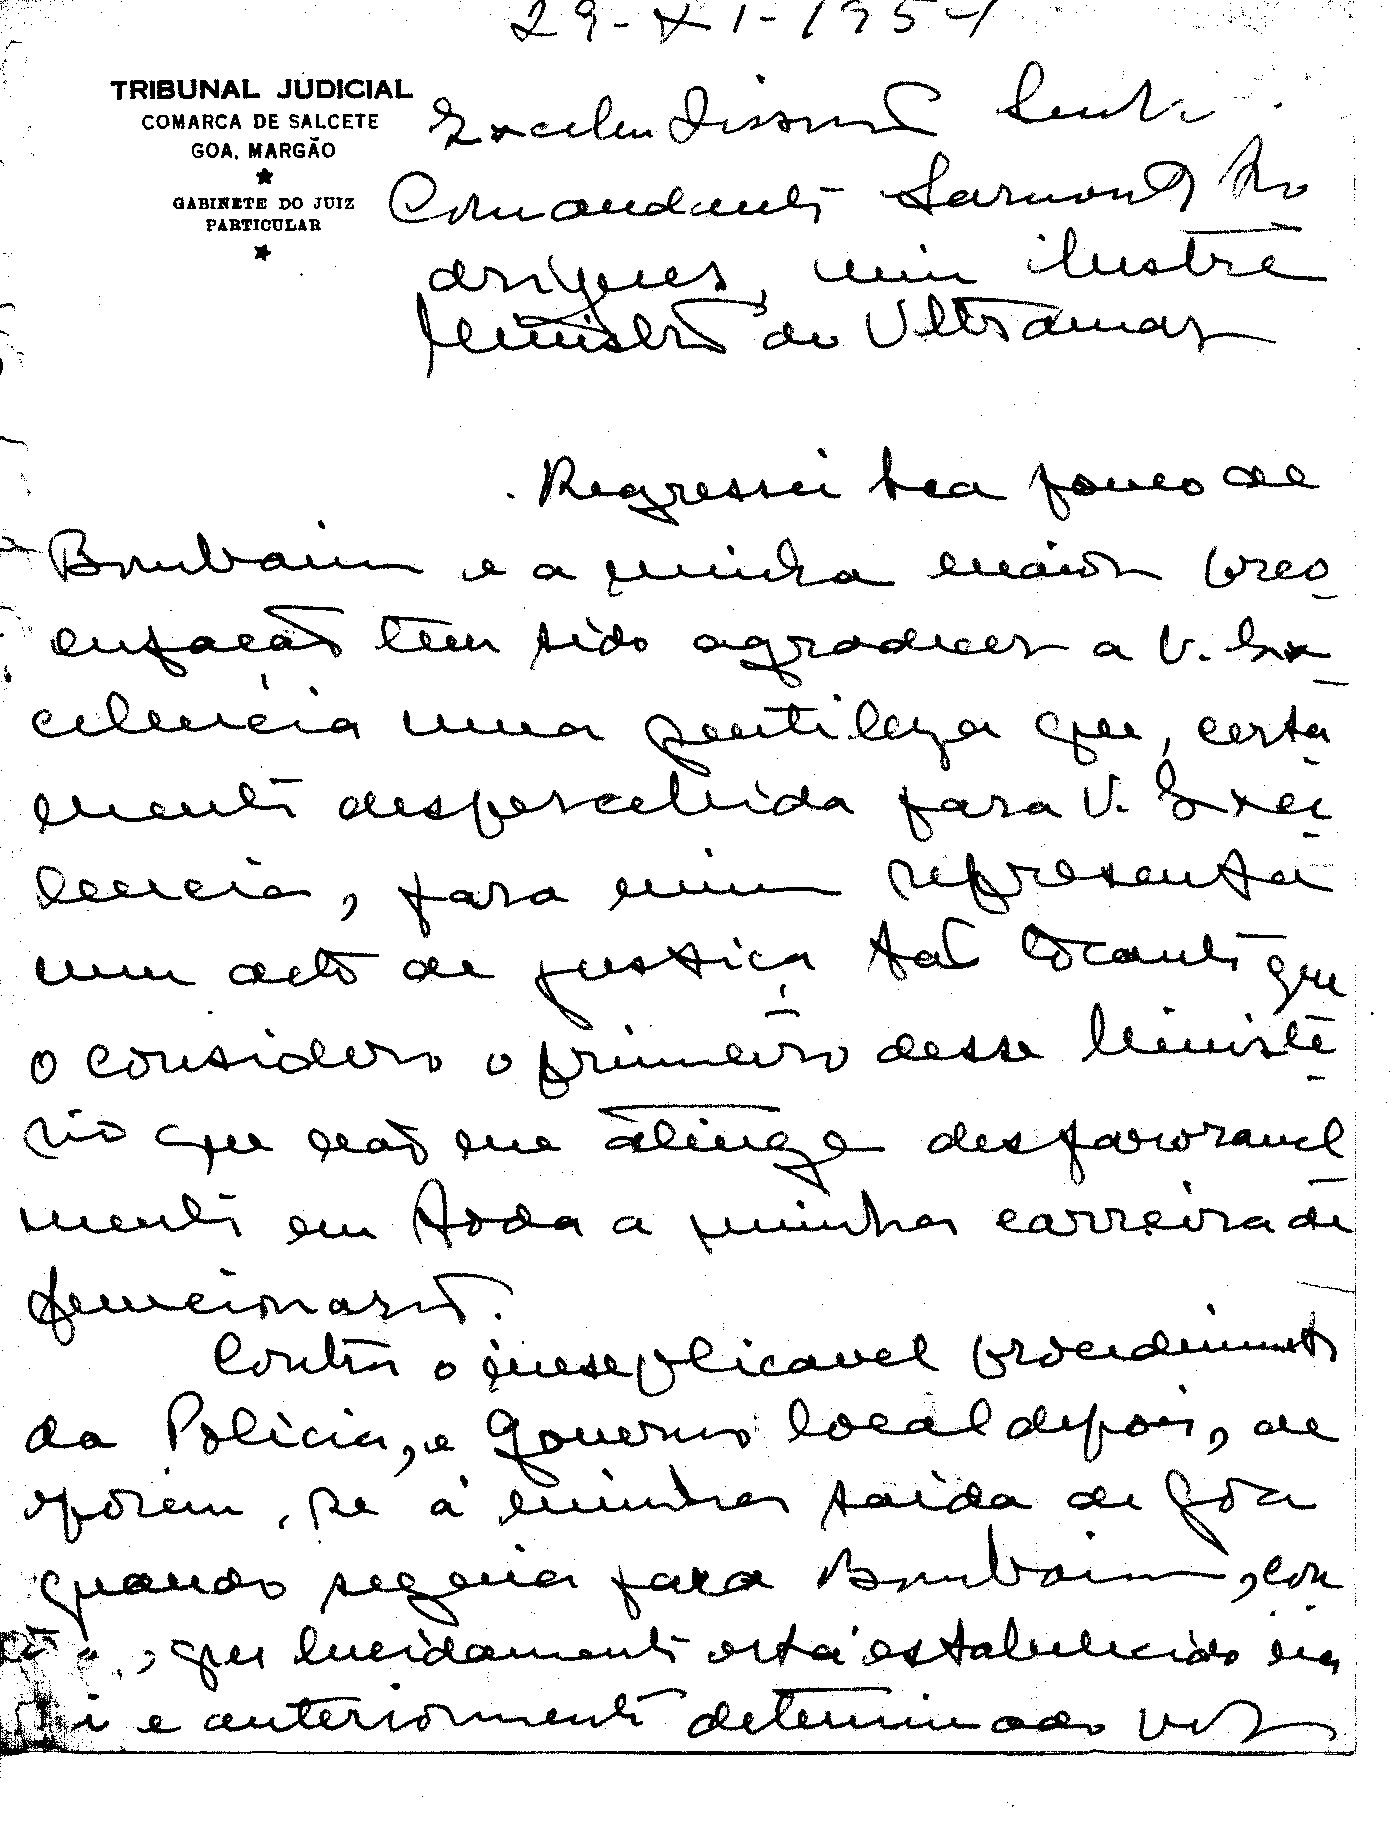 29-XI-1954
TRIBUNAL JUDICIAL
COMARCA DE SALCETE
GOA, MARGÃO
★
GABINETE DO JUIZ
PARTICULAR
★
Excelentissimo Senhor
Comandante Sarmento Ro
drigues, mui ilustre
Ministro do Ultramar
Regressei ha pouco de
Bombaim e a minha maior preo-
cupação tem sido agradecer a V. Ex-
celencia uma gentileza que, certa-
mente despercebida para V. Exce-
lencia, para mim representa
um acto de justiça tão tocante que
o considero o primeiro desse Ministé-
rio que não me atinge desfavoravel-
mente em toda a minha carreira de
funcionario.
Contra o inesplicavel procedimento
da Policia, e Governo local depois, de
oporem-se á minha saida de Gôa
quando seguia para Bombaim, con-
tra o que lucidamente está estabelecido na
lei e anteriormente determinado